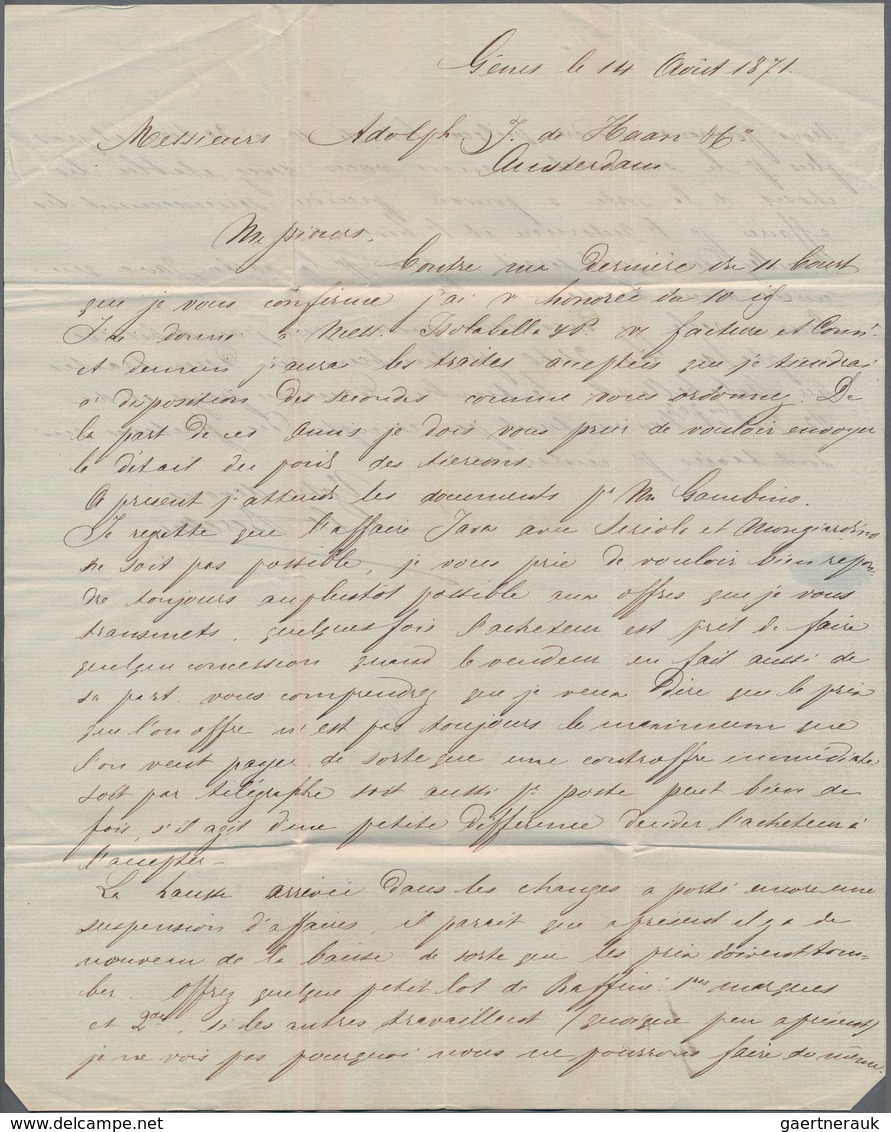 Gènes le 14 Août 1871.
Messieurs Adolph J. de Haan & Co
Amsterdam
Messieurs,
Contre ma dernière du 11 Court
que je vous confirme j'ai v honorée du 10 id
J'ai donné à Mess. Dolabella & v facture et Conn.t
et demain j'aurai les traites acceptées que je tiendrai
à disposition des secondes comme vous ordonnez. De
la part de ces amis je dois vous prier de vouloir envoyer
le détail du poids des tierçons.
A présent j'attends les documents pr Mr Gambino.
Je regrette que l'affaire Java avec Seriolo et Mongiardino
ne soit pas possible, je vous prie de vouloir bien repon-
dre toujours auplustôt possible aux offres que je vous
transmets, quelques fois l'acheteur est prêt de faire
quelque concession quand le vendeur en fait aussi de
sa part. vous comprendrez que je veux dire que le prix
que l'on offre n'est pas toujours le maximum que
l'on veut payer de sorte que une controffre immédiate
soit par télégraphe soit aussi pr poste peut bien de
fois, s'il agit d'une petite différence decider l'acheteur à
l'accepter –
La hausse arrivée dans les changes a porté encore une
suspension d'affaires, il parait que apresent il y a de
nouveau de la baisse de sorte que les prix doivent tom-
ber. Offrez quelque petit lot de Raffiné 1res marques
et 2des, si les autres travaillent (quoique peu apresent)
je ne vois pas pourquoi nous ne pourrons faire du même.
gaertnerauk